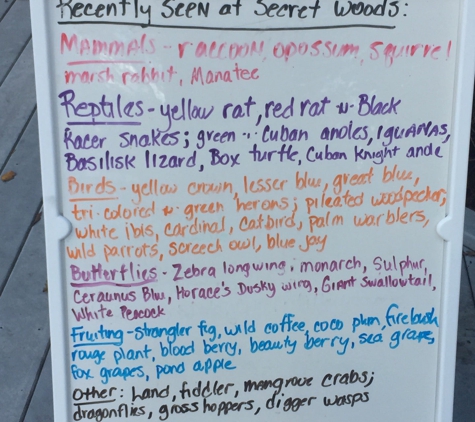 Recently Seen at Secret Woods:
Mammals - raccoon, opossum, squirrel
marsh rabbit, Manatee
Reptiles - yellow rat, red rat & Black
Racer snakes; green & Cuban anoles, IGUANAS,
Basilisk lizard, Box turtle, Cuban Knight anole
Birds - yellow crown, lesser blue, great blue,
tri-colored & green herons; pileated woodpecker,
white ibis, cardinal, catbird, palm warblers,
wild parrots, screech owl, blue jay
Butterflies - Zebra longwing, monarch, Sulphur,
Ceraunus Blue, Horace's Dusky wing, Giant Swallowtail,
White Peacock
Fruiting - strangler fig, wild coffee, coco plum, firebush
rouge plant, blood berry, beauty berry, sea grape,
fox grapes, pond apple
Other: Land, fiddler, mangrove crabs;
dragonflies, grosshoppers, digger wasps